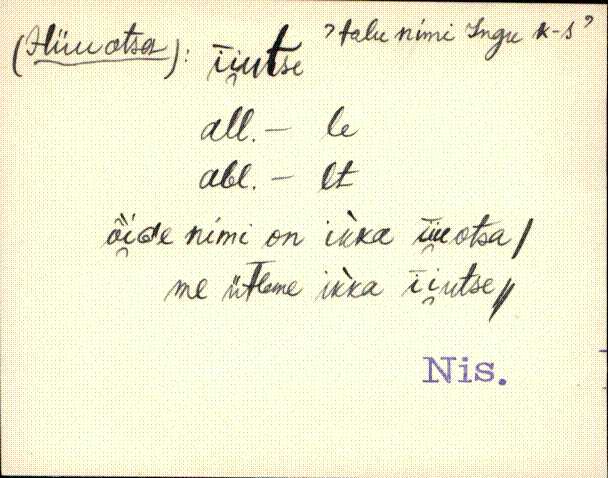 (Hiiu otsa): ìi̯utse ˀtalu nimi Ingu k-sˀ
all. — le
abl. — lt
õi̯ɢe nimi on ìkka iiuotsa/
me ütleme ìkka ìi̯utse//
Nis.